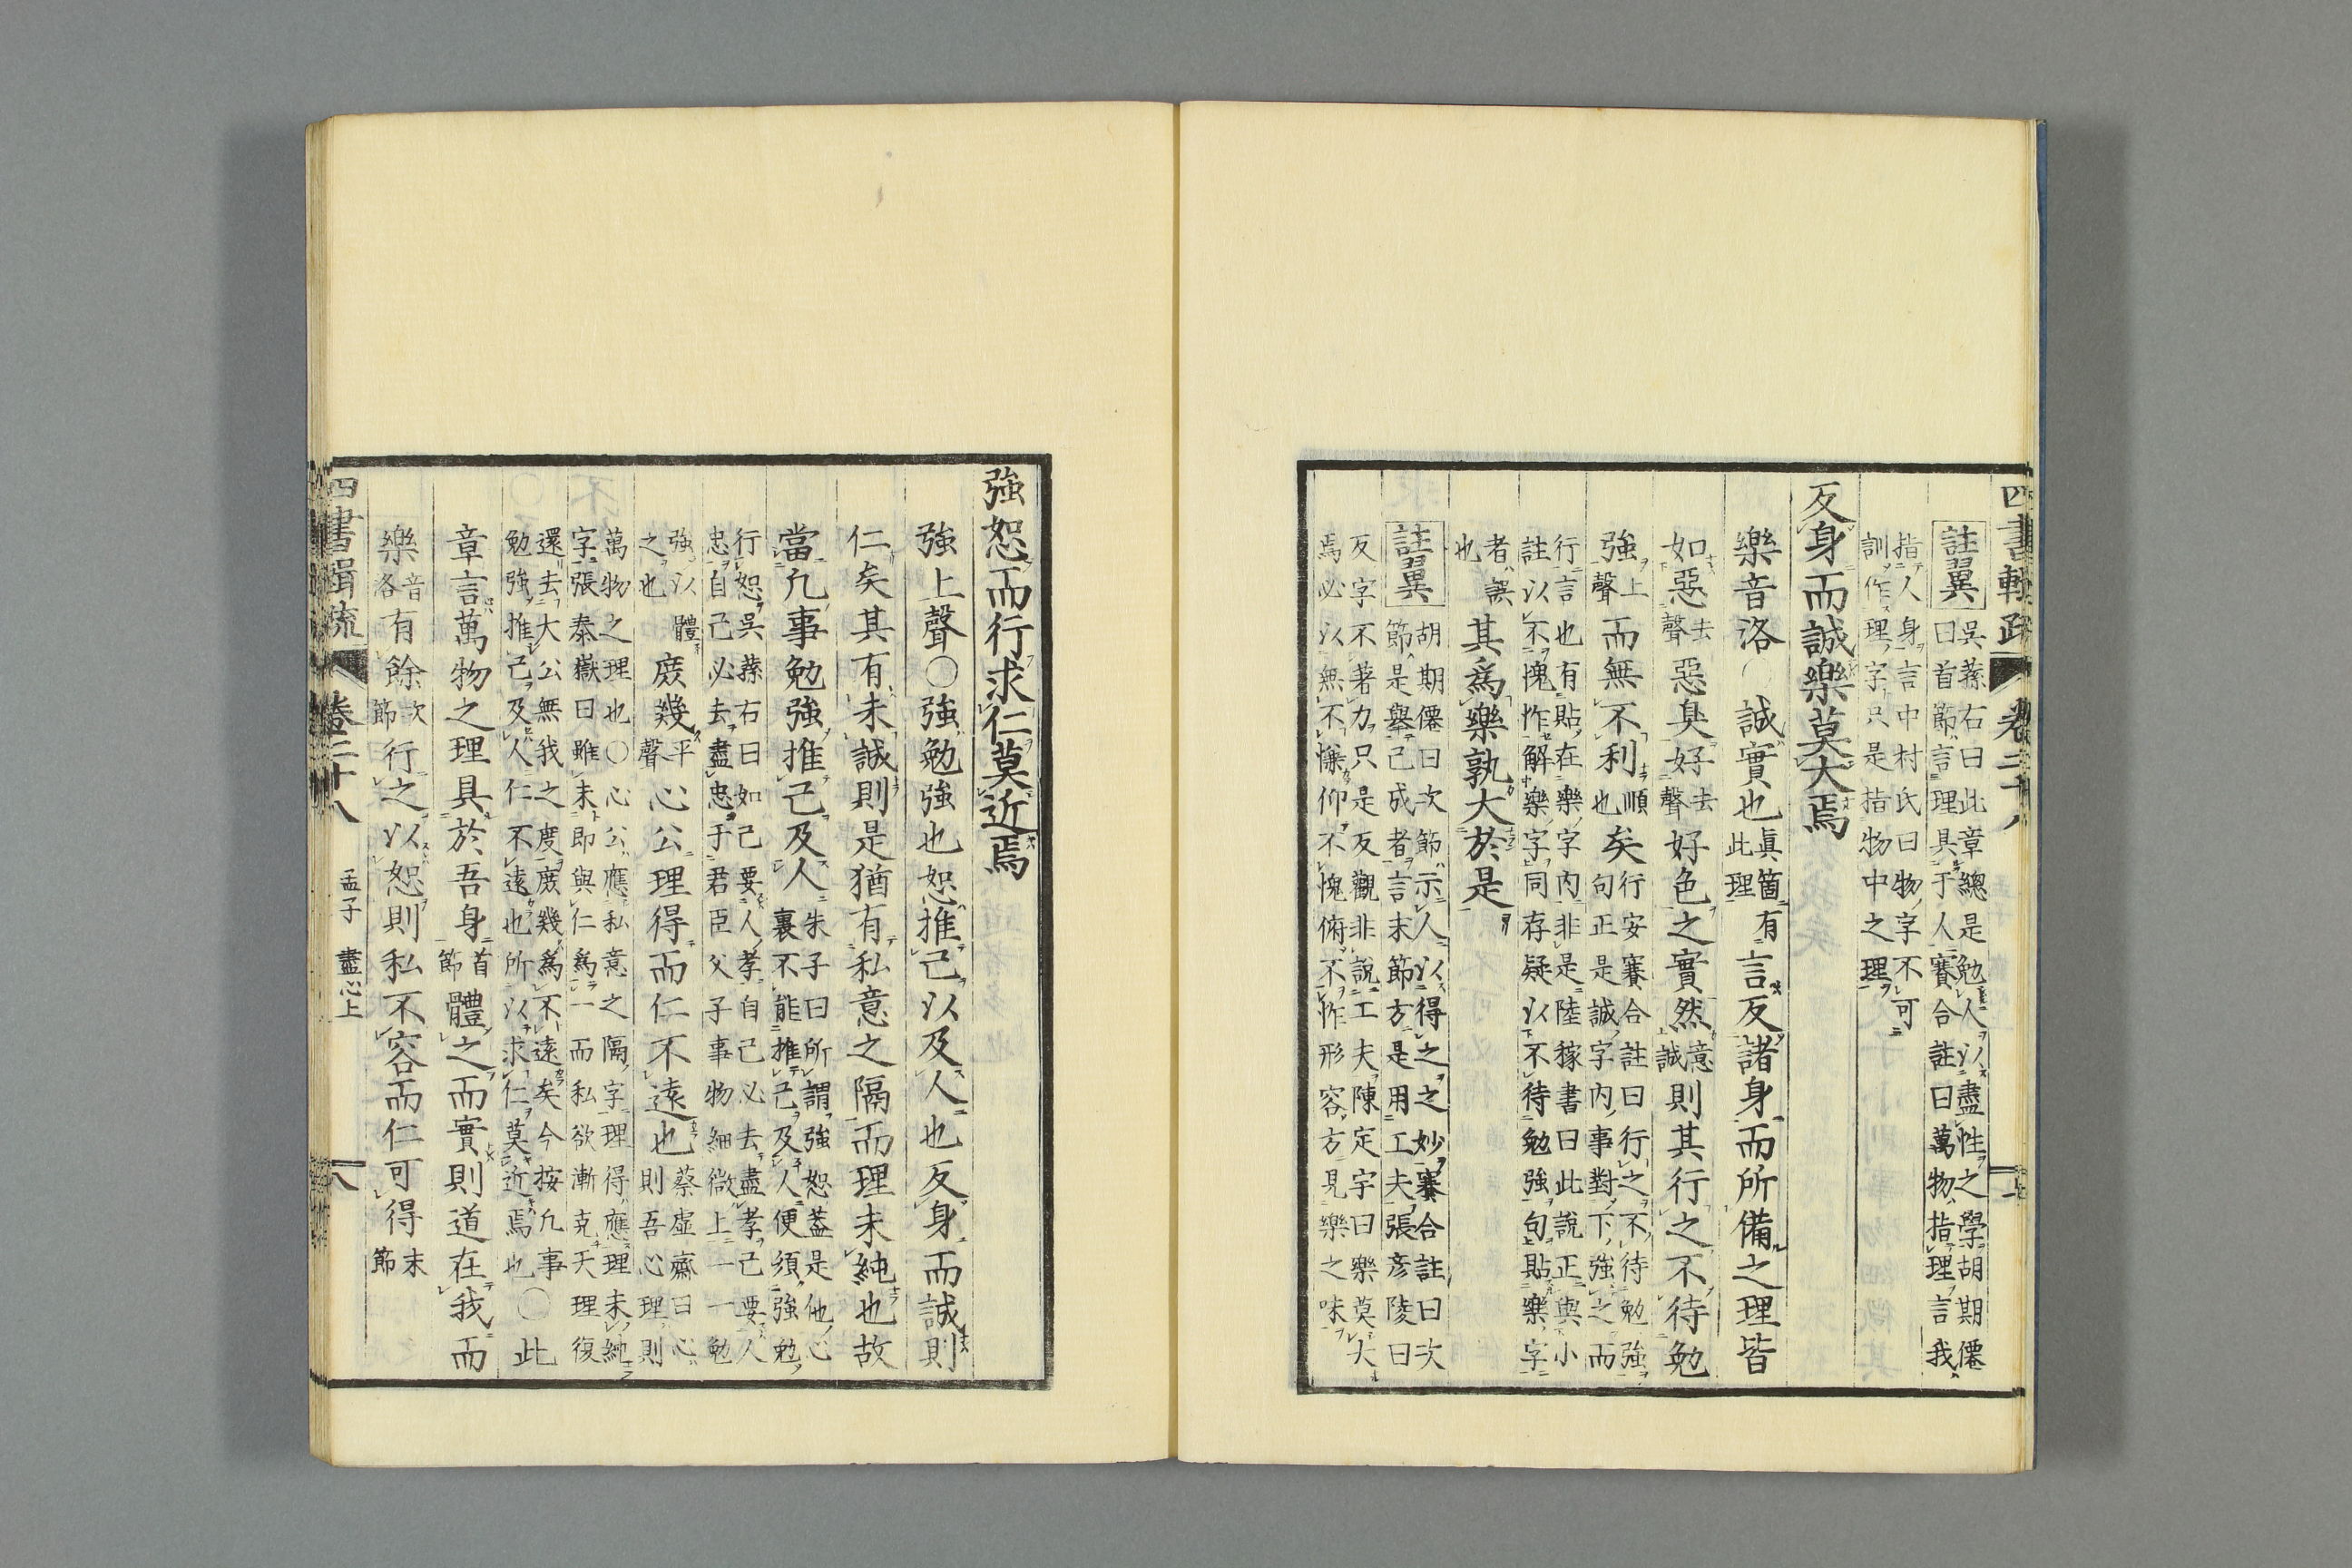 四書輯疏 卷二十八
註翼 吳蓀右曰此章總是勉人以盡性之學胡期僊
曰首節言理具于人賽合註曰萬物指理言我
指人身言中村氏曰物字不可
訓作理字只是指物中之理
反身而誠樂莫大焉
樂音洛〇誠實也眞箇有此理言反諸身而所備之理皆
如惡去聲惡臭好去聲好色之實然意誠則其行之不待勉
強上聲而無不利順也矣行安賽合註曰行之不待勉強
句正是誠字內事對下強之而
行言也有貼在樂字內非是陸稼書曰此說正與小
註以不愧怍解樂字同存疑以不待勉強句貼樂字
者誤也其爲樂孰大於是
註翼 胡期僊曰次節示人以得之之妙賽合註曰次
節是舉己成者言末節方是用工夫張彥陵曰
反字不著力只是反觀非說工夫陳定宇曰樂莫大
焉必以無不慊仰不愧俯不怍形容方見樂之味
強恕而行求仁莫近焉
強上聲〇強勉強也恕推己以及人也反身而誠則
仁矣其有未誠則是猶有私意之隔而理未純也故
當凡事勉強推己及人朱子曰所謂強恕蓋是他心
裏不能推己及人便須強勉
行恕吳蓀右曰如己要人孝自己必去盡孝己要人
忠自己必去盡忠于君臣父子事物細微上一一勉
強以體之也庶幾平聲心公理得而仁不遠也蔡虛齋曰心
則吾心理則
萬物之理也〇心公應私意之隔字理得應理未純
字張泰嶽曰雖未卽與仁爲一而私欲漸克天理復
還去大公無我之度庶幾爲不遠矣今按凡事
勉強推己及人仁不遠也所以求仁莫近焉也〇此
章言萬物之理具於吾身首節體之而實則道在我而
樂音洛有餘次節行之以恕則私不容而仁可得末節
四書輯疏 卷二十八 孟子 盡心上 八